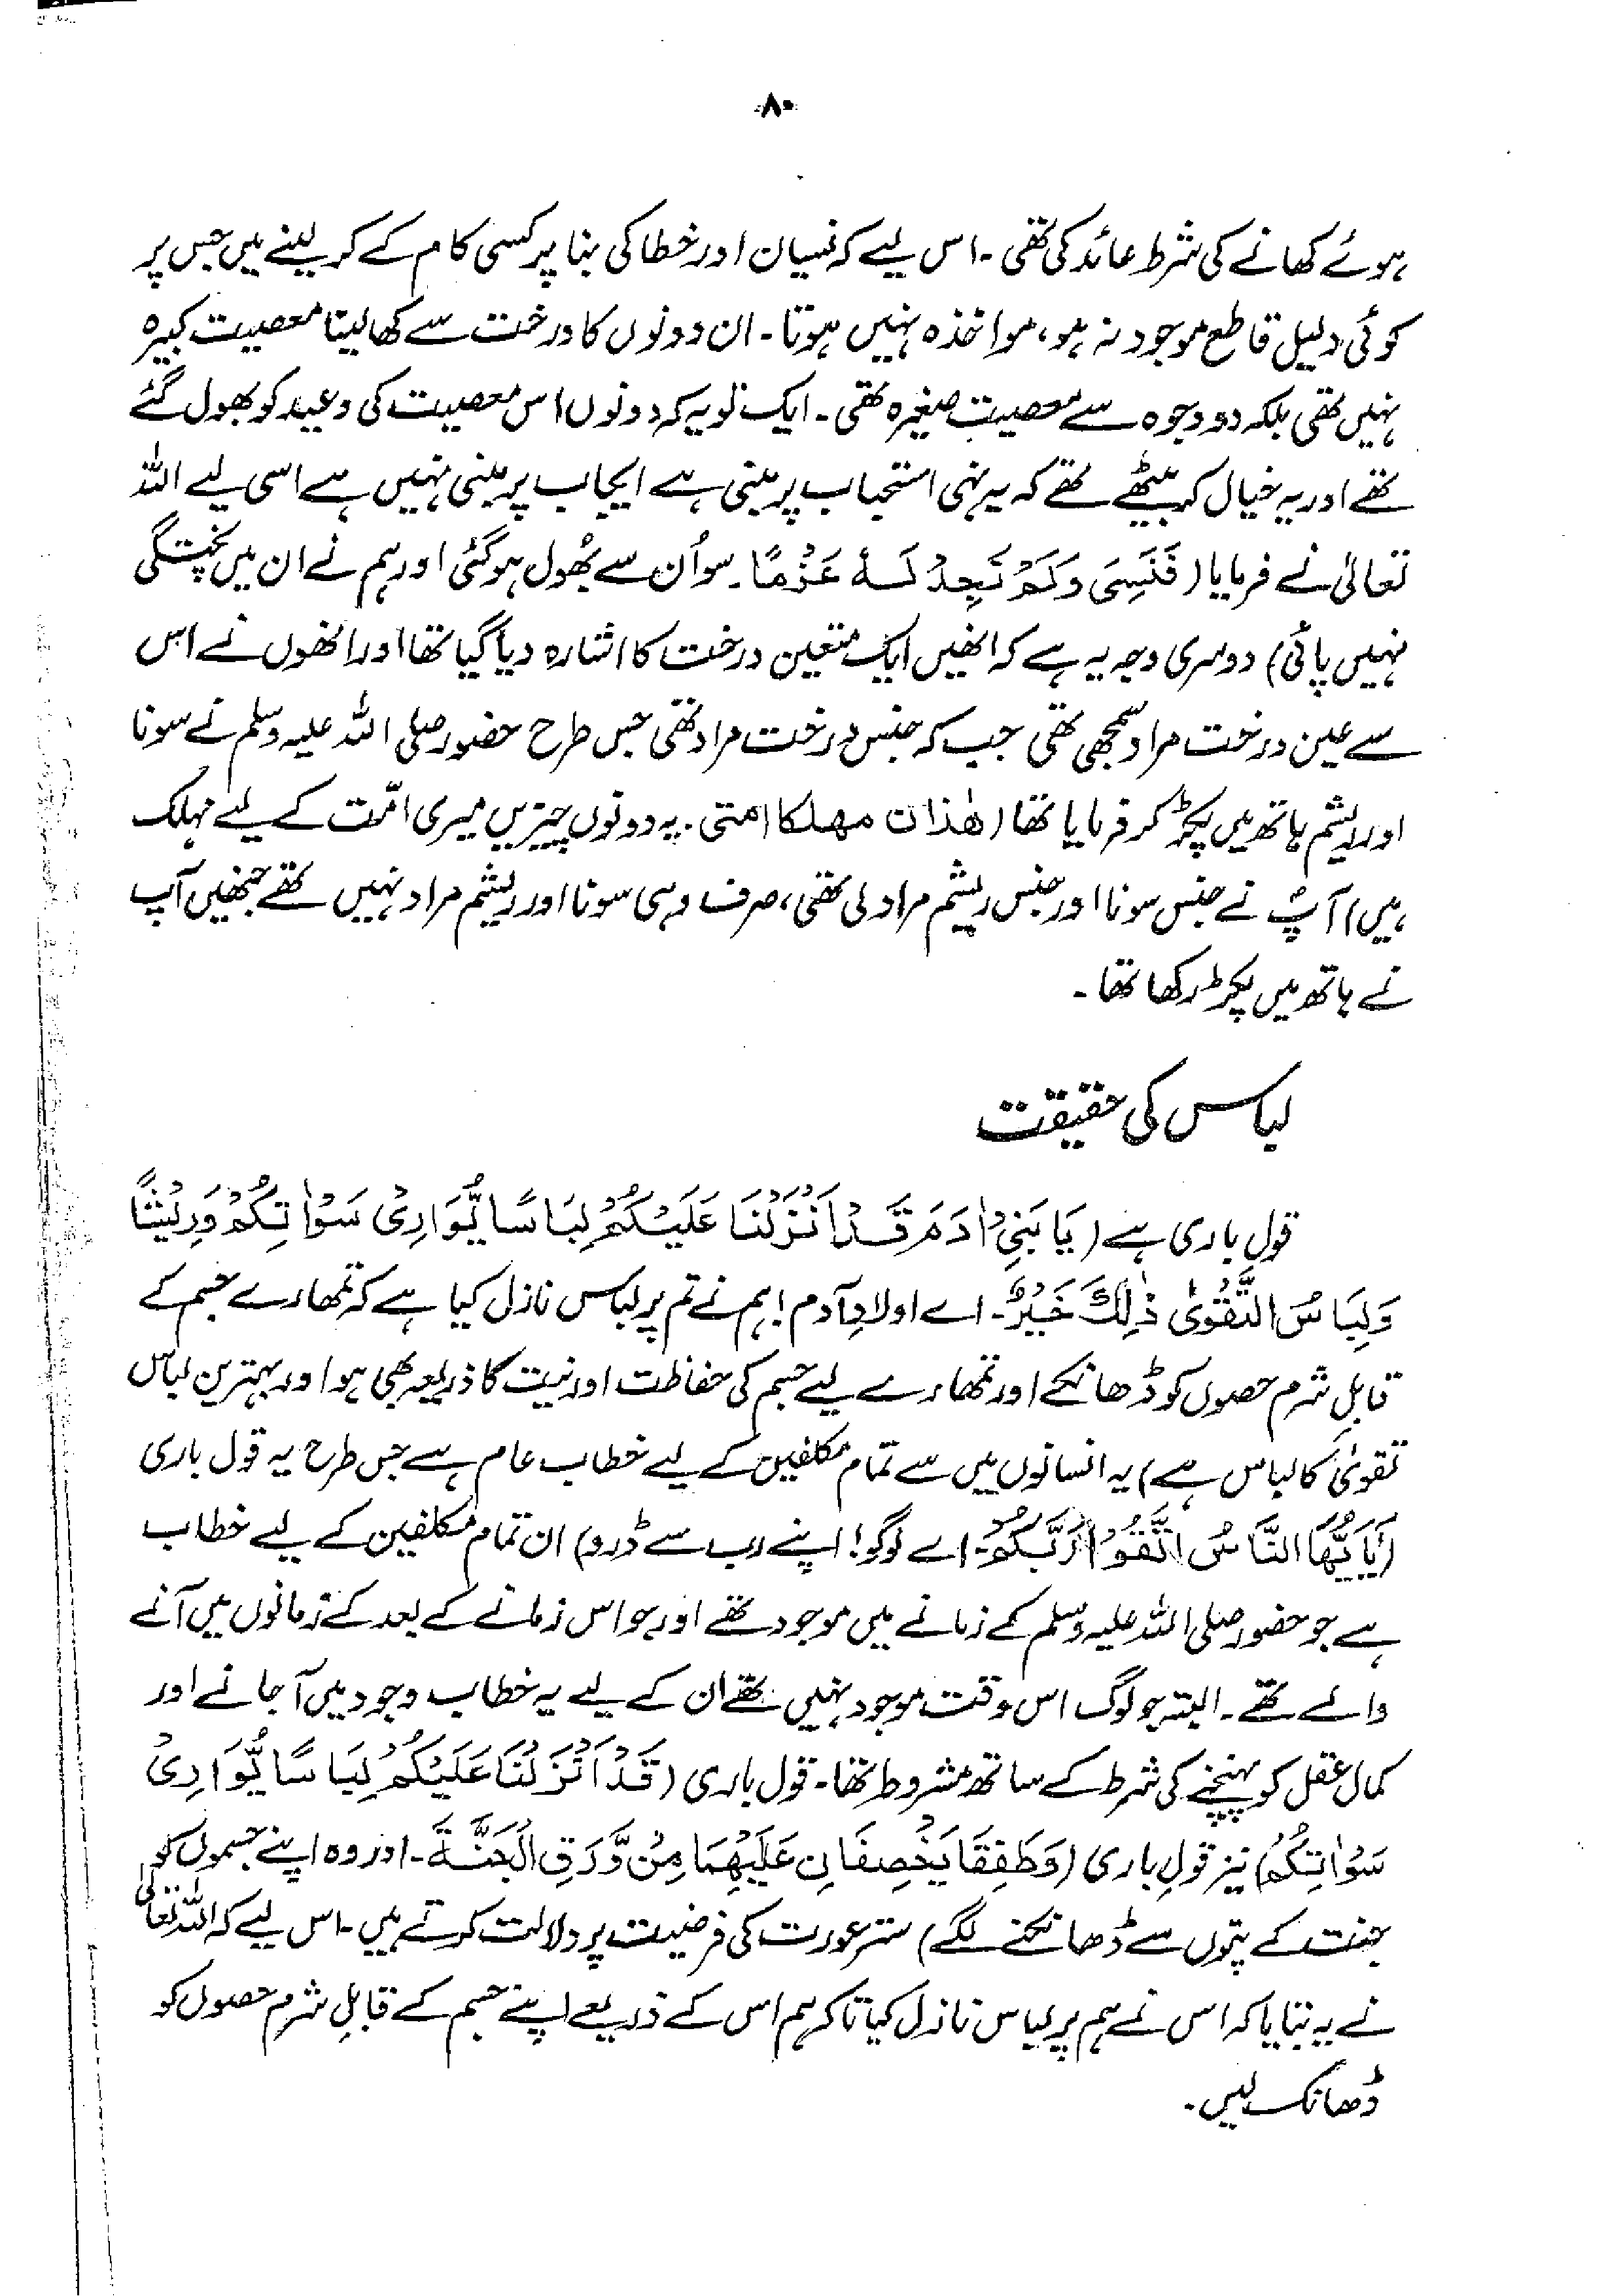 ۸۰
ہوئے کھانے کی شرط عائد کی تھی ۔ اس لیے کہ نسیان اور خطا کی بنا پر کسی کام کے کر لینے میں جس پر
کوئی دلیل قاطع موجود نہ ہو، مواخذہ نہیں ہوتا ۔ ان دونوں کا درخت سے کھا لینا معصیت کبیرہ
نہیں تھی بلکہ دو وجوہ سے معصیتِ صغیرہ تھی ۔ ایک تو یہ کہ دونوں اس معصیت کی وعید کو بھول گئے
تھے اور یہ خیال کر بیٹھے تھے کہ یہ نہی استحباب پر مبنی ہے ایجاب پر مبنی نہیں ہے اسی لیے اللہ
تعالیٰ نے فرمایا (فَنَسِيَ وَلَمْ نَجِدْ لَـهٗ عَزْمًا ۔ سو اُن سے بھُول ہو گئی اور ہم نے ان میں پختگی
نہیں پائی) دوسری وجہ یہ ہے کہ انھیں ایک متعین درخت کا اشارہ دیا گیا تھا اور انھوں نے اس
سے عین درخت مراد سمجھی تھی جب کہ جنس درخت مراد تھی جس طرح حضور صلی اللہ علیہ وسلم نے سونا
اور ریشم ہاتھ میں پکڑ کر فرمایا تھا (ھٰذان مھلکا امتی ۔ یہ دونوں چیزیں میری امّت کے لیے مہلک
ہیں) آپؐ نے جنس سونا اور جنس ریشم مراد لی تھی، صرف وہی سونا اور ریشم مراد نہیں تھے جنھیں آپ
نے ہاتھ میں پکڑ رکھا تھا ۔
لباس کی حقیقت
قولِ باری ہے (يَا بَنِيْٓ اٰدَمَ قَـدْ اَنْزَلْنَا عَلَيْـكُمْ لِبَاسًا يُّوَارِيْ سَوْاٰتِكُمْ وَرِيْشًا
وَلِبَاسُ التَّقْوٰى ذٰلِكَ خَيْرٌ ۔ اے اولادِ آدم! ہم نے تم پر لباس نازل کیا ہے کہ تمھارے جسم کے
قابلِ شرم حصوں کو ڈھانکے اور تمھارے لیے جسم کی حفاظت اور زینت کا ذریعہ بھی ہو اور بہترین لباس
تقویٰ کا لباس ہے) یہ انسانوں میں سے تمام مکلفین کے لیے خطاب عام ہے جس طرح یہ قول باری
(يَآيُّهَا النَّاسُ اتَّقُوْا رَبَّكُمْ ۔ اے لوگو! اپنے رب سے ڈرو) ان تمام مکلفین کے لیے خطاب
ہے جو حضور صلی اللہ علیہ وسلم کے زمانے میں موجود تھے اور جو اس زمانے کے بعد کے زمانوں میں آنے
والے تھے ۔ البتہ جو لوگ اس وقت موجود نہیں تھے ان کے لیے یہ خطاب وجود میں آ جانے اور
کمال عقل کو پہنچنے کی شرط کے ساتھ مشروط تھا ۔ قول باری (قَدْ اَنْزَلْنَا عَلَيْكُمْ لِبَاسًا يُّوَارِيْ
سَوْاٰتِكُمْ) نیز قولِ باری (وَطَفِقَا يَخْصِفَانِ عَلَيْهِمَا مِنْ وَّرَقِ الْجَنَّـةِ ۔ اور وہ اپنے جسموں کو
جنت کے پتوں سے ڈھانکنے لگے) ستر عورت کی فرضیت پر دلالت کرتے ہیں ۔ اس لیے کہ اللہ تعالیٰ
نے یہ بتایا کہ اس نے ہم پر لباس نازل کیا تاکہ ہم اس کے ذریعے اپنے جسم کے قابلِ شرم حصوں کو
ڈھانک لیں ۔